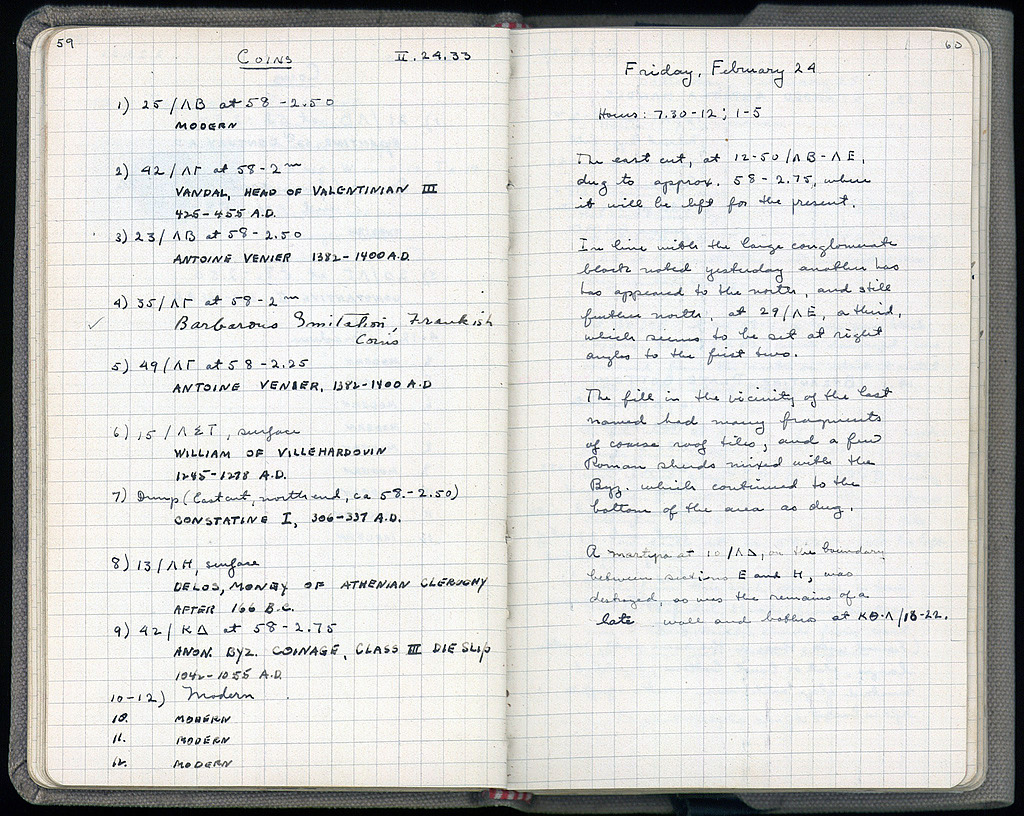 59
COINS II.24.33
1) 25/ΛB at 58-2.50
MODERN
2) 42/ΛΓ at 58-2m
VANDAL, HEAD OF VALENTINIAN III
425-455 A.D.
3) 23/ΛB at 58-2.50
ANTOINE VENIER 1382-1400 A.D.
4) 35/ΛΓ at 58-2m
✓ Barbarous Imitation, Frankish
Coins
5) 49/ΛΓ at 58-2.25
ANTOINE VENIER, 1382-1400 A.D
6) 15/ΛΣΤ, surface
WILLIAM OF VILLEHARDOUIN
1245-1278 A.D.
7) Dump (East cut, north end, ca 58.-2.50)
CONSTATINE I, 306-337 A.D.
8) 13/ΛH, surface
DELOS, MONEY OF ATHENIAN CLERUCHY
AFTER 166 B.C.
9) 42/KΔ at 58-2.75
ANON. BYZ. COINAGE, CLASS III DIE SLIP
1042-1055 A.D.
10-12) Modern
10. MODERN
11. MODERN
12. MODERN
60
Friday, February 24
Hours: 7.30-12; 1-5
The east cut, at 12-50/ΛB-ΛE,
dug to approx. 58-2.75, where
it will be left for the present.
In line with the large conglomerate
block noted yesterday another has
has appeared to the north, and still
further north, at 29/ΛE, a third,
which seems to be set at right
angles to the first two.
The fill in the vicinity of the last
named had many fragments
of coarse roof tiles, and a few
Roman sherds mixed with the
Byz. which continued to the
bottom of the area as dug.
A martyra at 10/ΛΔ, on the boundary
between sections E and H, was
destroyed, as was the remains of a
late wall and bothros at KΘ-Λ/18-22.